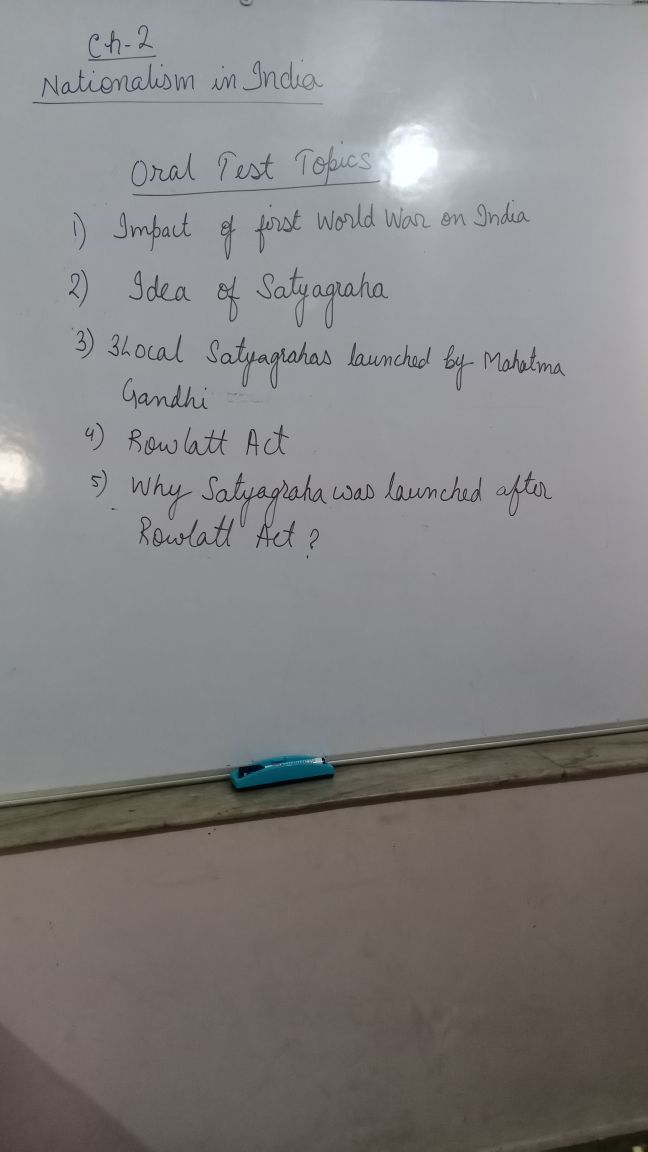 Ch-2
Nationalism in India
Oral Test Topics
1) Impact of first World War on India
2) Idea of Satyagraha
3) 3Local Satyagrahas launched by Mahatma
Gandhi
4) Rowlatt Act
5) Why Satyagraha was launched after
Rowlatt Act ?